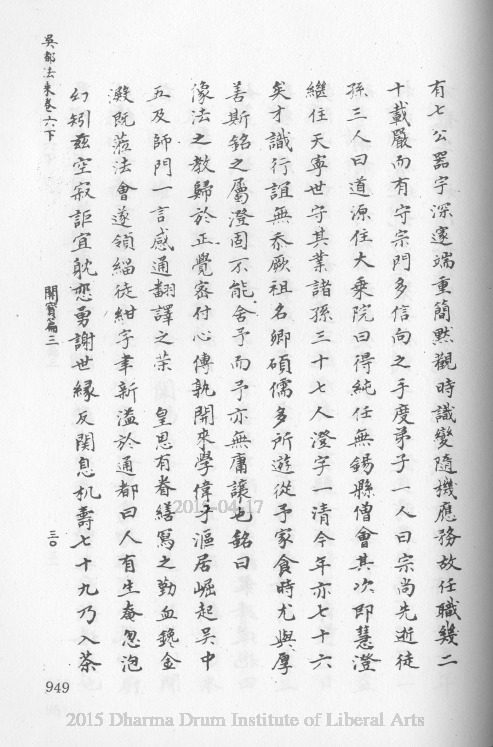 吳都法乘卷六下
有七公器宇深邃端重簡黙觀時識變隨機應務故任職幾二
十載嚴而有守宗門多信向之手度弟子一人曰宗尚先逝徒
孫三人曰道源住大乗院曰得純任無錫縣僧會其次即慧澄
繼住天寧世守其業諸孫三十七人澄字一清今年亦七十六
矣才識行誼無忝厥祖名卿碩儒多所遊從予家食時尤與厚
善斯銘之屬澄固不能舍予而予亦無庸讓也銘曰
像法之教歸於正覺密付心傳孰開來學偉乎漚居崛起吳中
五及師門一言感通翻譯之荣 皇恩有眷繕寫之勤血
金
澱既蒞法會遂領緇徒紺宇聿新溢於通都曰人有生奄忽泡
幻矧兹空寂詎宜躭恋勇謝世縁反関息机壽七十九乃入荼
開寳篇三
三〇
949
2015-04-17
2015 Dharma Drum Institute of Liberal Arts